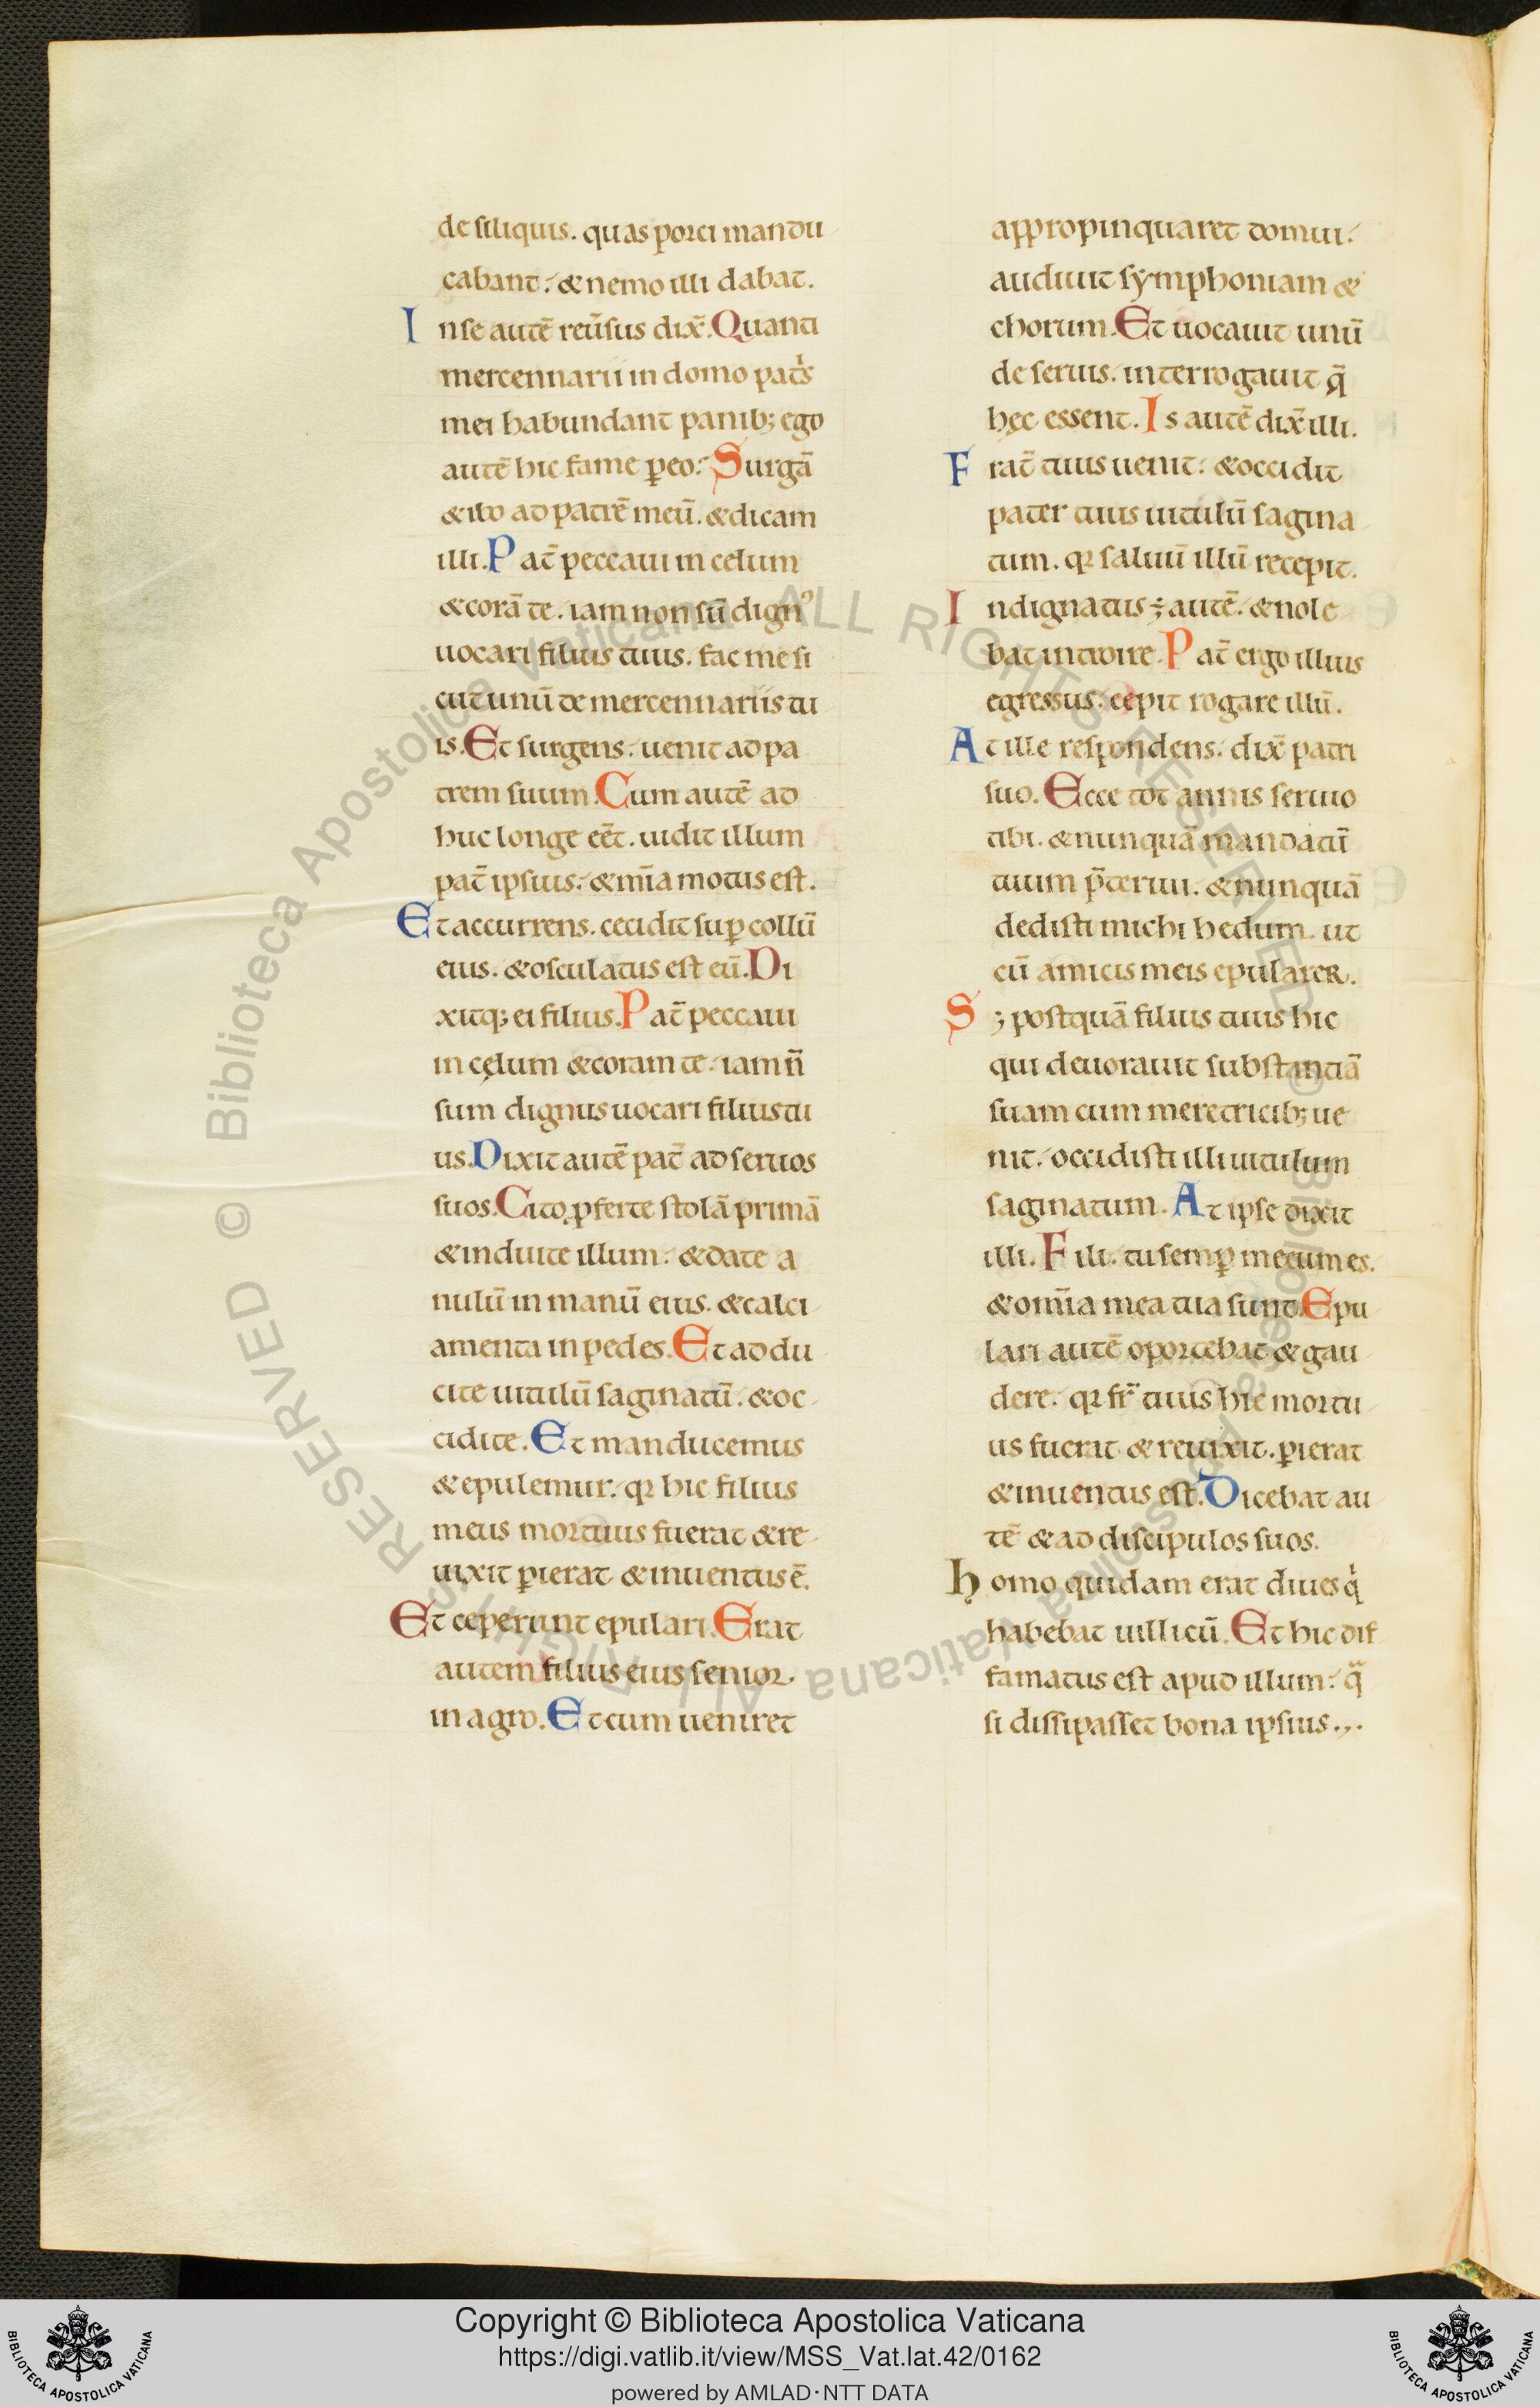 de siliquis. quas porci mandu
cabant. & nemo illi dabat.
In se autē reūsus dix̄. Quanti
mercennarii in domo pat̍s
mei habundant panib; ego
autē hic fame ꝑeo. Surgā
& ibo ad patrē meū. & dicam
illi. Pat̄ peccaui in celum
& corā te. iam non sū dignꝰ
uocari filius tuus. fac me si
cut unū de mercennariis tu
is. Et surgens. uenit ad pa
trem suum. Cum autē ad
huc longe eēt. uidit illum
pat̄ ipsius. & mīa motus est.
Et accurrens. cecidit suꝑ collū
eius. & osculatus est eū. Di
xitq; ei filius. Pat̄ peccaui
in cęlum & coram te. iam n̄
sum dignus uocari filius tu
us. Dixit autē pat̄ ad seruos
suos. Cito ꝓferte stolā primā
& induite illum. & date a
nulū in manū eius. & calci
amenta in pedes. Et addu
cite uitulū saginatū. & oc
cidite. Et manducemus
& epulemur. qꝛ hic filius
meus mortuus fuerat & re
uixit ꝑierat & inuentus ē.
Et ceperunt epulari. Erat
autem filius eius senior.
in agro. Et cum ueniret
appropinquaret domui.
audiuit symphoniam &
chorum. Et uocauit unū
de seruis. interrogauit q̄
hęc essent. Is autē dix̄ illi.
Frat̄ tuus uenit. & occidit
pater tuus uitulū sagina
tum. qꝛ saluū illū recepit.
Indignatus ÷ autē. & nole
bat introire. Pat̄ ergo illius
egressus. cepit rogare illū.
At ille respondens. dix̄ patri
suo. Ecce tot annis seruio
tibi. & nunquā mandatū
tuum p̄teriui. & nunquā
dedisti michi hedum. ut
cū amicis meis epularer.
S; postquā filius tuus hic
qui deuorauit substantiā
suam cum meretricib; ue
nit. occidisti illi uitulum
saginatum. At ipse dixit
illi. Fili. tu semꝑ mecum es.
& omīa mea tua sunt. Epu
lari autē oportebat & gau
dere. qꝛ fr̄ tuus hic mortu
us fuerat & reuixit. ꝑierat
& inuentus est. Dicebat au
tē & ad discipulos suos.
Homo quidam erat diues q̍
habebat uillicū. Et hic dif
famatus est apud illum. qᷓ
si dissipasset bona ipsius.,.
© Biblioteca Apostolica Vaticana ALL RIGHTS RESERVED © Biblioteca Apostolica Vaticana ALL RIGHTS RESERVED
Copyright © Biblioteca Apostolica Vaticana
https://digi.vatlib.it/view/MSS_Vat.lat.42/0162
powered by AMLAD·NTT DATA
BIBLIOTECA APOSTOLICA VATICANA
BIBLIOTECA APOSTOLICA VATICANA